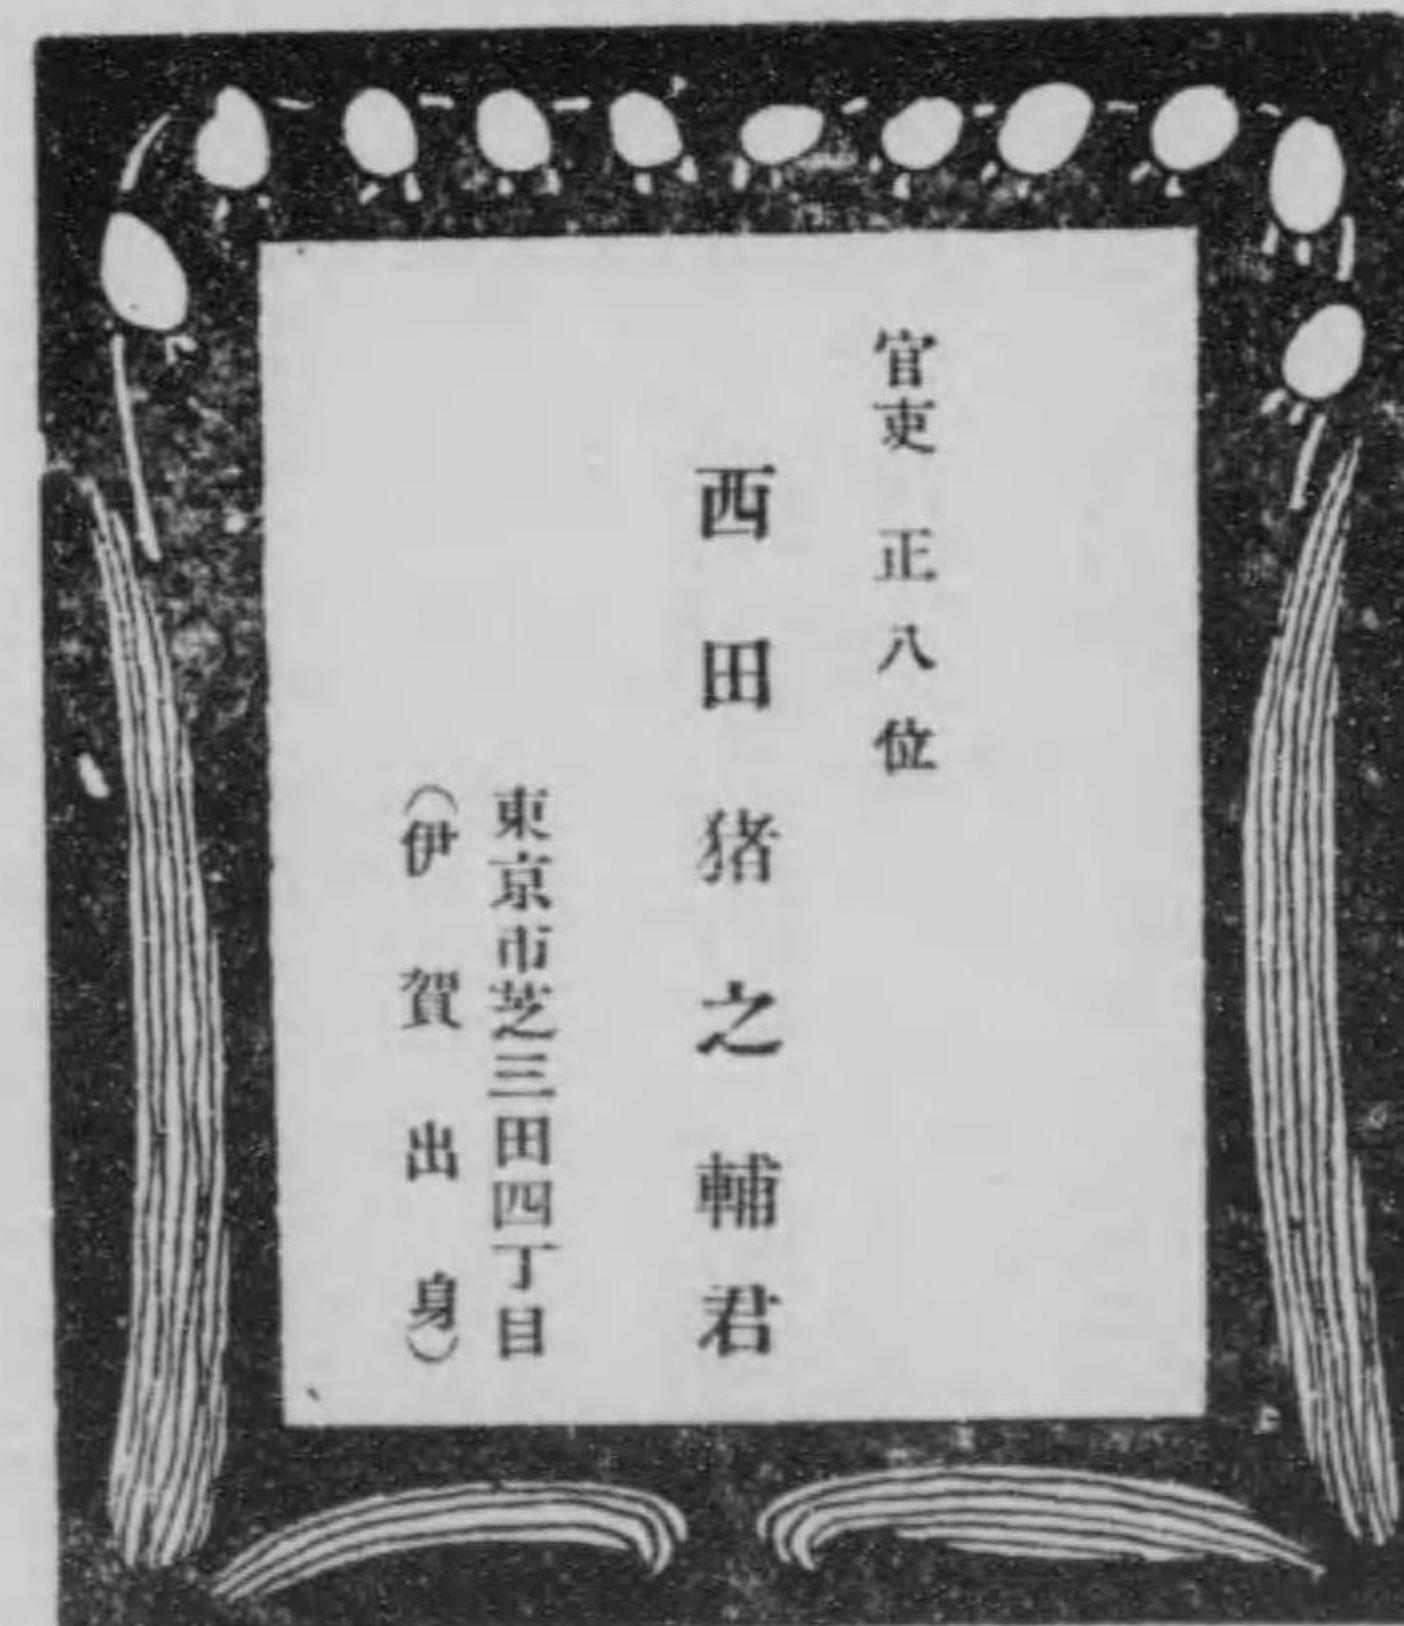 官吏 正八位
西田猪之輔君
東京市芝三田四丁目
（伊賀出身）